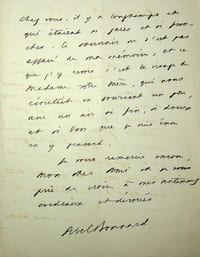 chez vous. il y a longtemps et
qui étaient si gaies et si
Ce souvenir ne s'est pas
effacé de ma mémoire, et ce
que j'y revois c'est le visage de
Madame votre mère, qui nous
en souriant un peu,
avec un air si fin, si doux
et si bon que je
en y pensant.
Je vous remercie encore,
mon cher Ami et je vous
prie de croire à mes sentiments
cordiaux et dévoués
Abel Bonnard